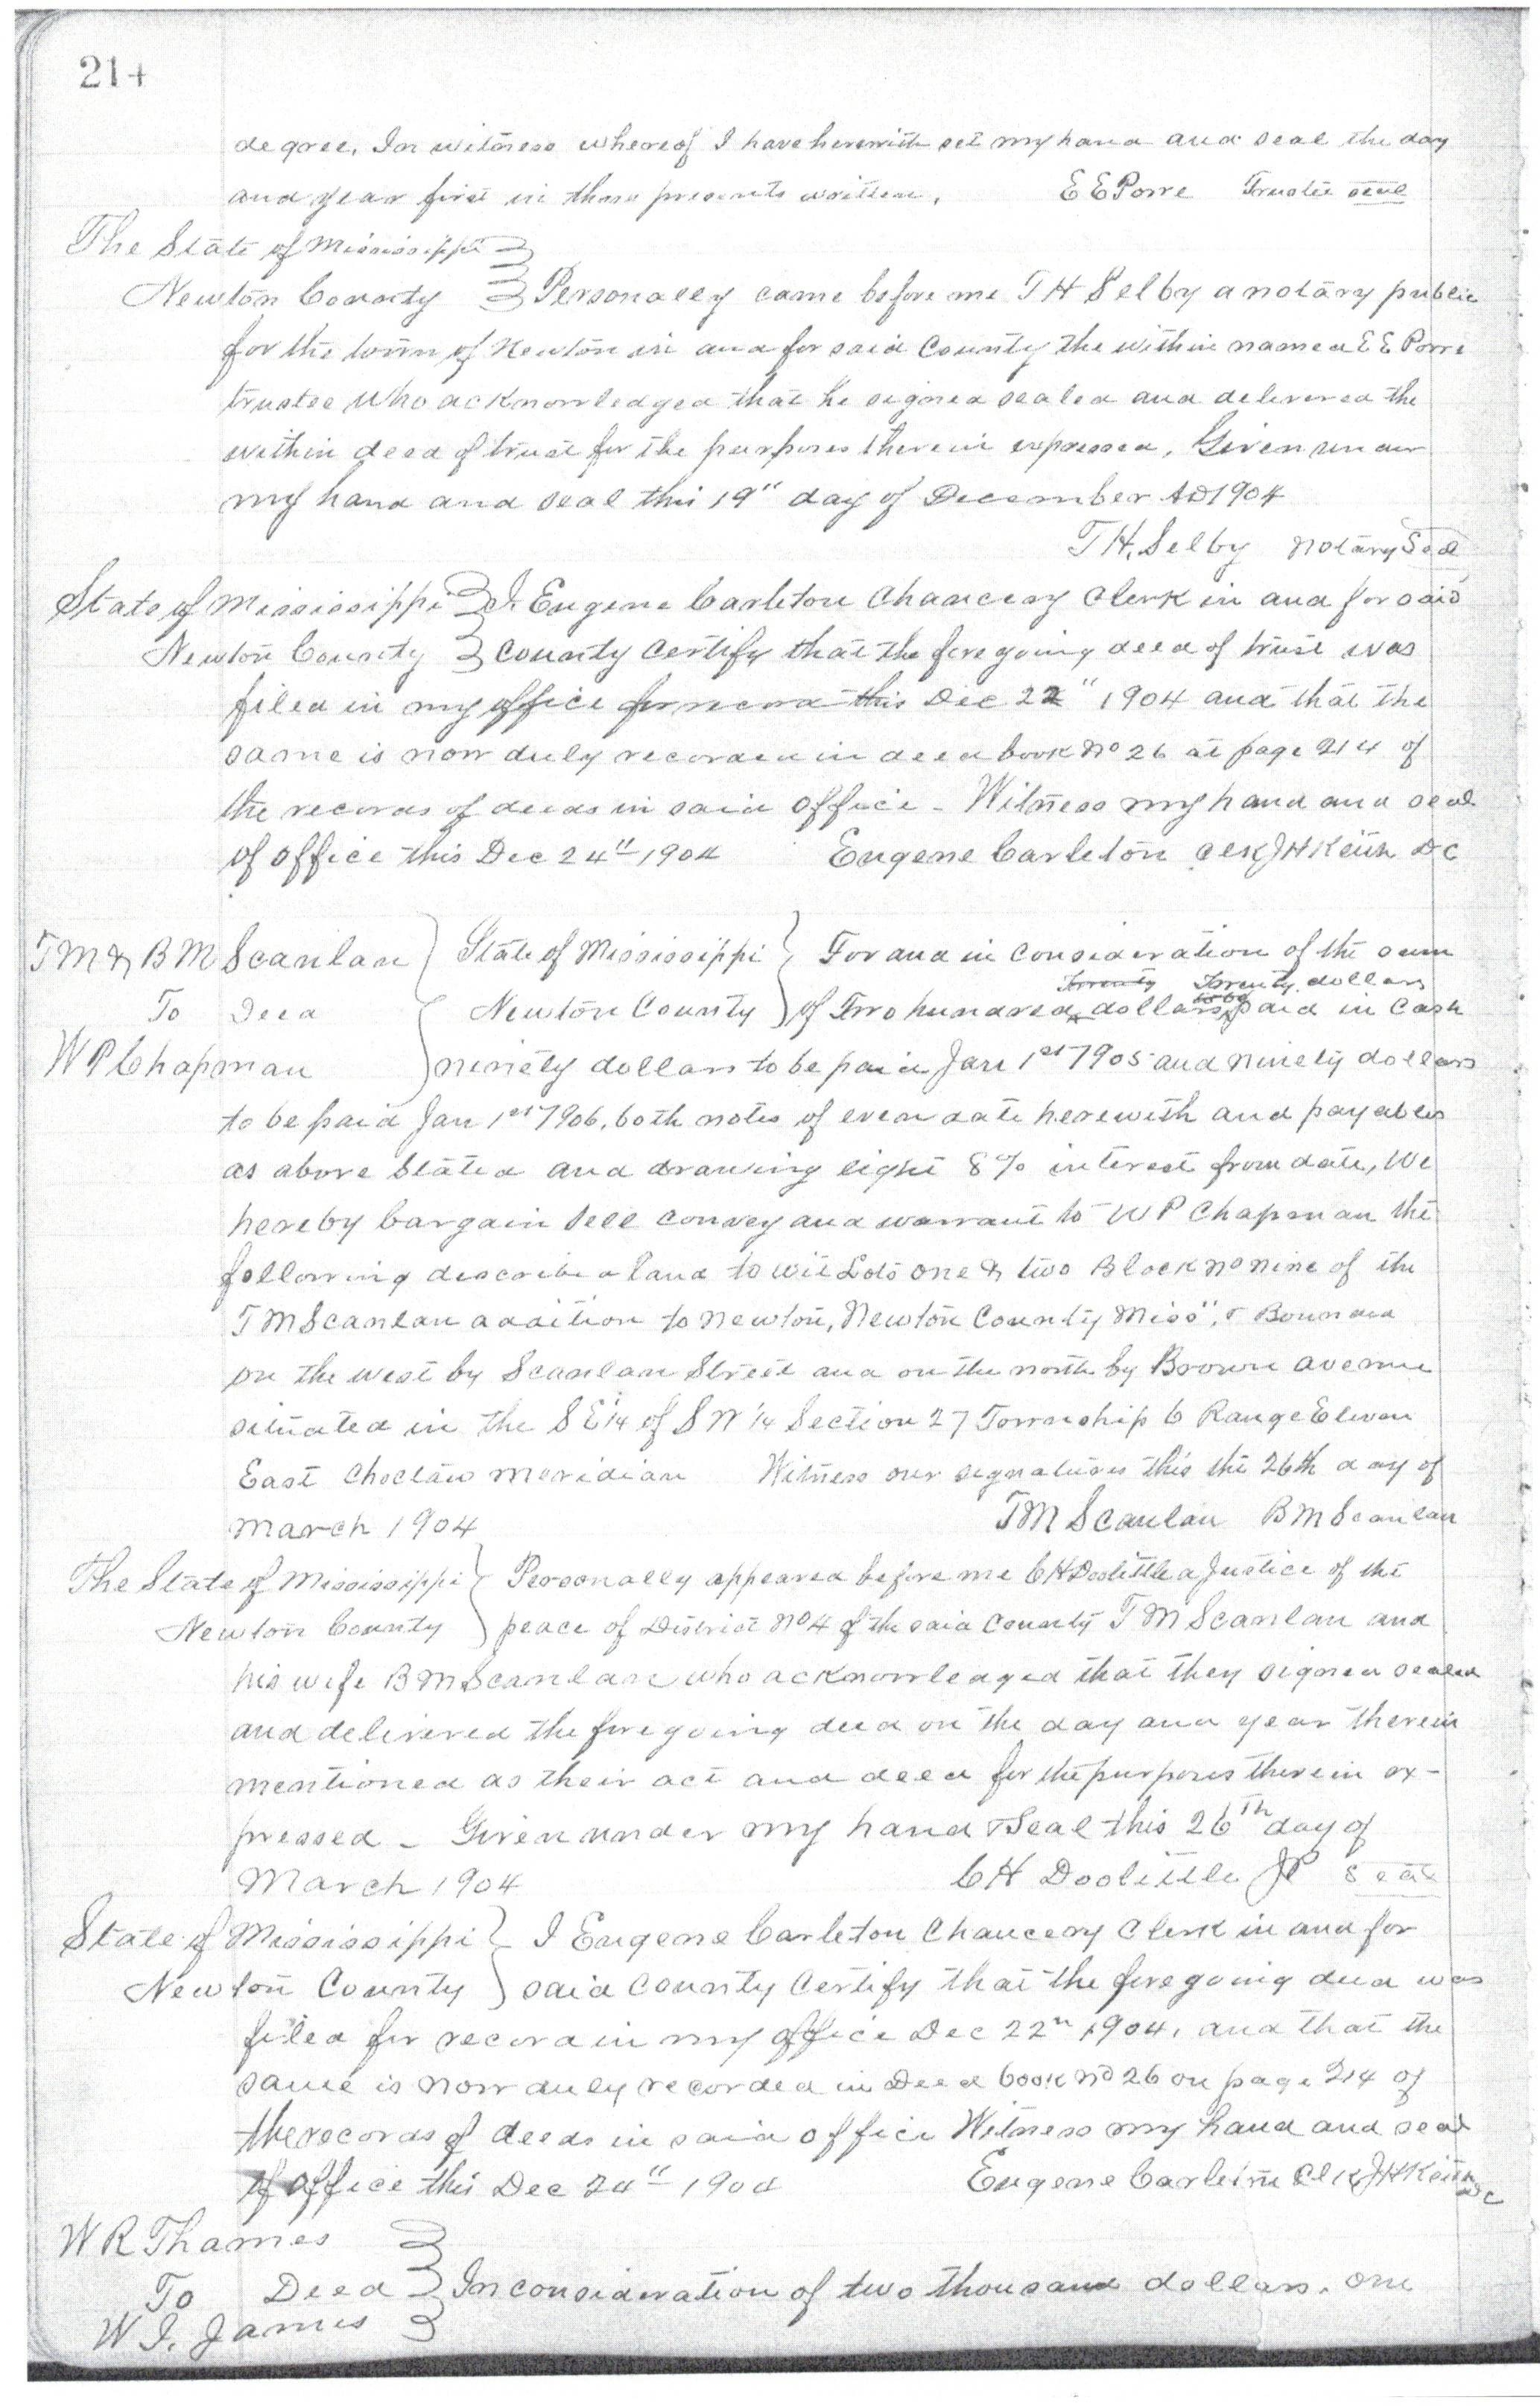 214
degree, In witness whereof I have herewith set my hand and seal the day
and year first in these presents written. E E Porre Trustee seal
The State of Mississippi
Newton County Personally came before me T H Selby a notary public
for the town of Newton in and for said County the within named E E Porre
trustee who acknowledged that he signed sealed and delivered the
within deed of trust for the purposes therein expressed, Given under
my hand and seal this 19" day of December AD 1904
T H. Selby Notary Seal
State of Mississippi I. Eugene Carleton Chancery Clerk in and for said
Newton County County Certify that the foregoing deed of trust was
filed in my office for record this Dec 22" 1904 and that the
same is now duly recorded in deed book No 26 at page 214 of
the records of deeds in said office - Witness my hand and seal
of office this Dec 24" 1904 Eugene Carleton Clk J H Keith D C
T M & B M Scanlan State of Mississippi For and in consideration of the sum
Twenty Twenty dollars
To Deed Newton County of Two hundred dollars to be paid in cash
W P Chapman ninety dollars to be paid Jan 1st 1905 and ninety dollars
to be paid Jan 1st 1906, both notes of even date herewith and payables
as above stated and drawing eight 8% interest from date, We
hereby bargain sell convey and warrant to W P Chapman the
following described land to wit Lots one & two Block No nine of the
T M Scanlan addition to Newton, Newton County Miss", & Bounded
on the west by Scanlan Street and on the north by Brown avenue
situated in the S E 1/4 of S W 1/4 Section 27 Township 6 Range Eleven
East Choctaw Meridian Witness our signatures this the 26th day of
March 1904 T M Scanlan B M Scanlan
The State of Mississippi Personally appeared before me C H Doolittle a Justice of the
Newton County peace of District No 4 of the said County T M Scanlan and
his wife B M Scanlan who acknowledged that they signed sealed
and delivered the foregoing deed on the day and year therein
mentioned as their act and deed for the purposes therein ex-
pressed - Given under my hand & Seal this 26th day of
March 1904 C H Doolittle J P Seal
State of Mississippi I Eugene Carleton Chancery Clerk in and for
Newton County said County Certify that the foregoing deed was
filed for record in my office Dec 22" 1904, and that the
same is now duly recorded in Deed book No 26 on page 214 of
the records of deeds in said office Witness my hand and seal
of office this Dec 24" 1904 Eugene Carleton Clk J H Keith DC
W R Thames
To Deed In consideration of two thousand dollars. one
W I. James